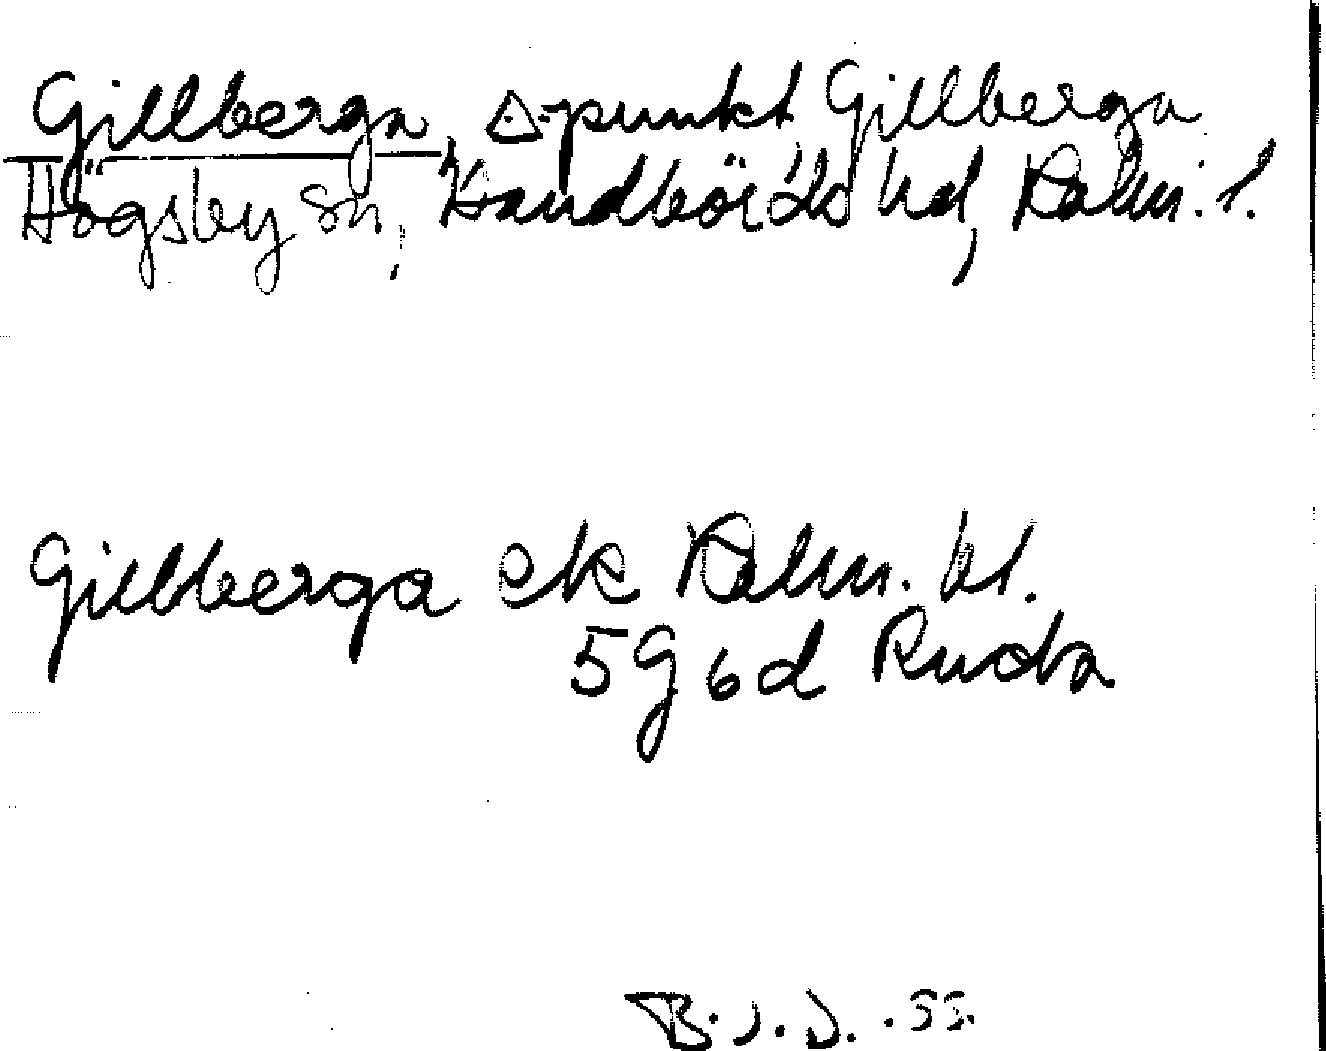 Gillberga, △-punkt Gillberga
Högsby sn, Handbörds hd, Kalm. l.
Gillberga ek Kalm. bl.
5G6d Ruda
B.J.J. .55.